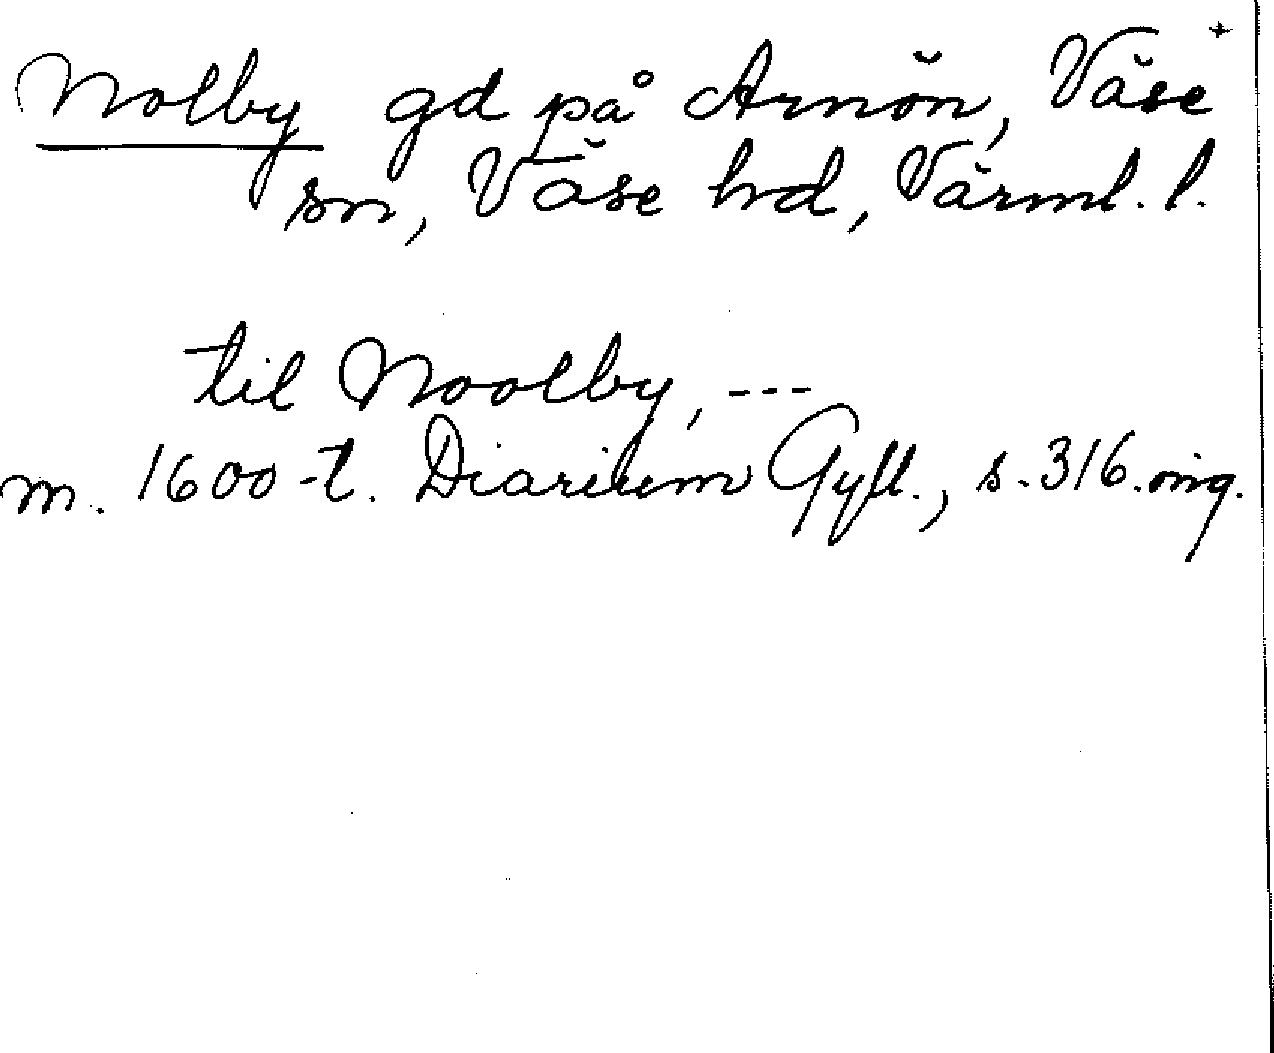 Nolby gd på Arnön, Väse +
sn, Väse hd, Värml. l.
til Noolby, ---
m. 1600-t. Diarium Gyll., s. 316. orig.